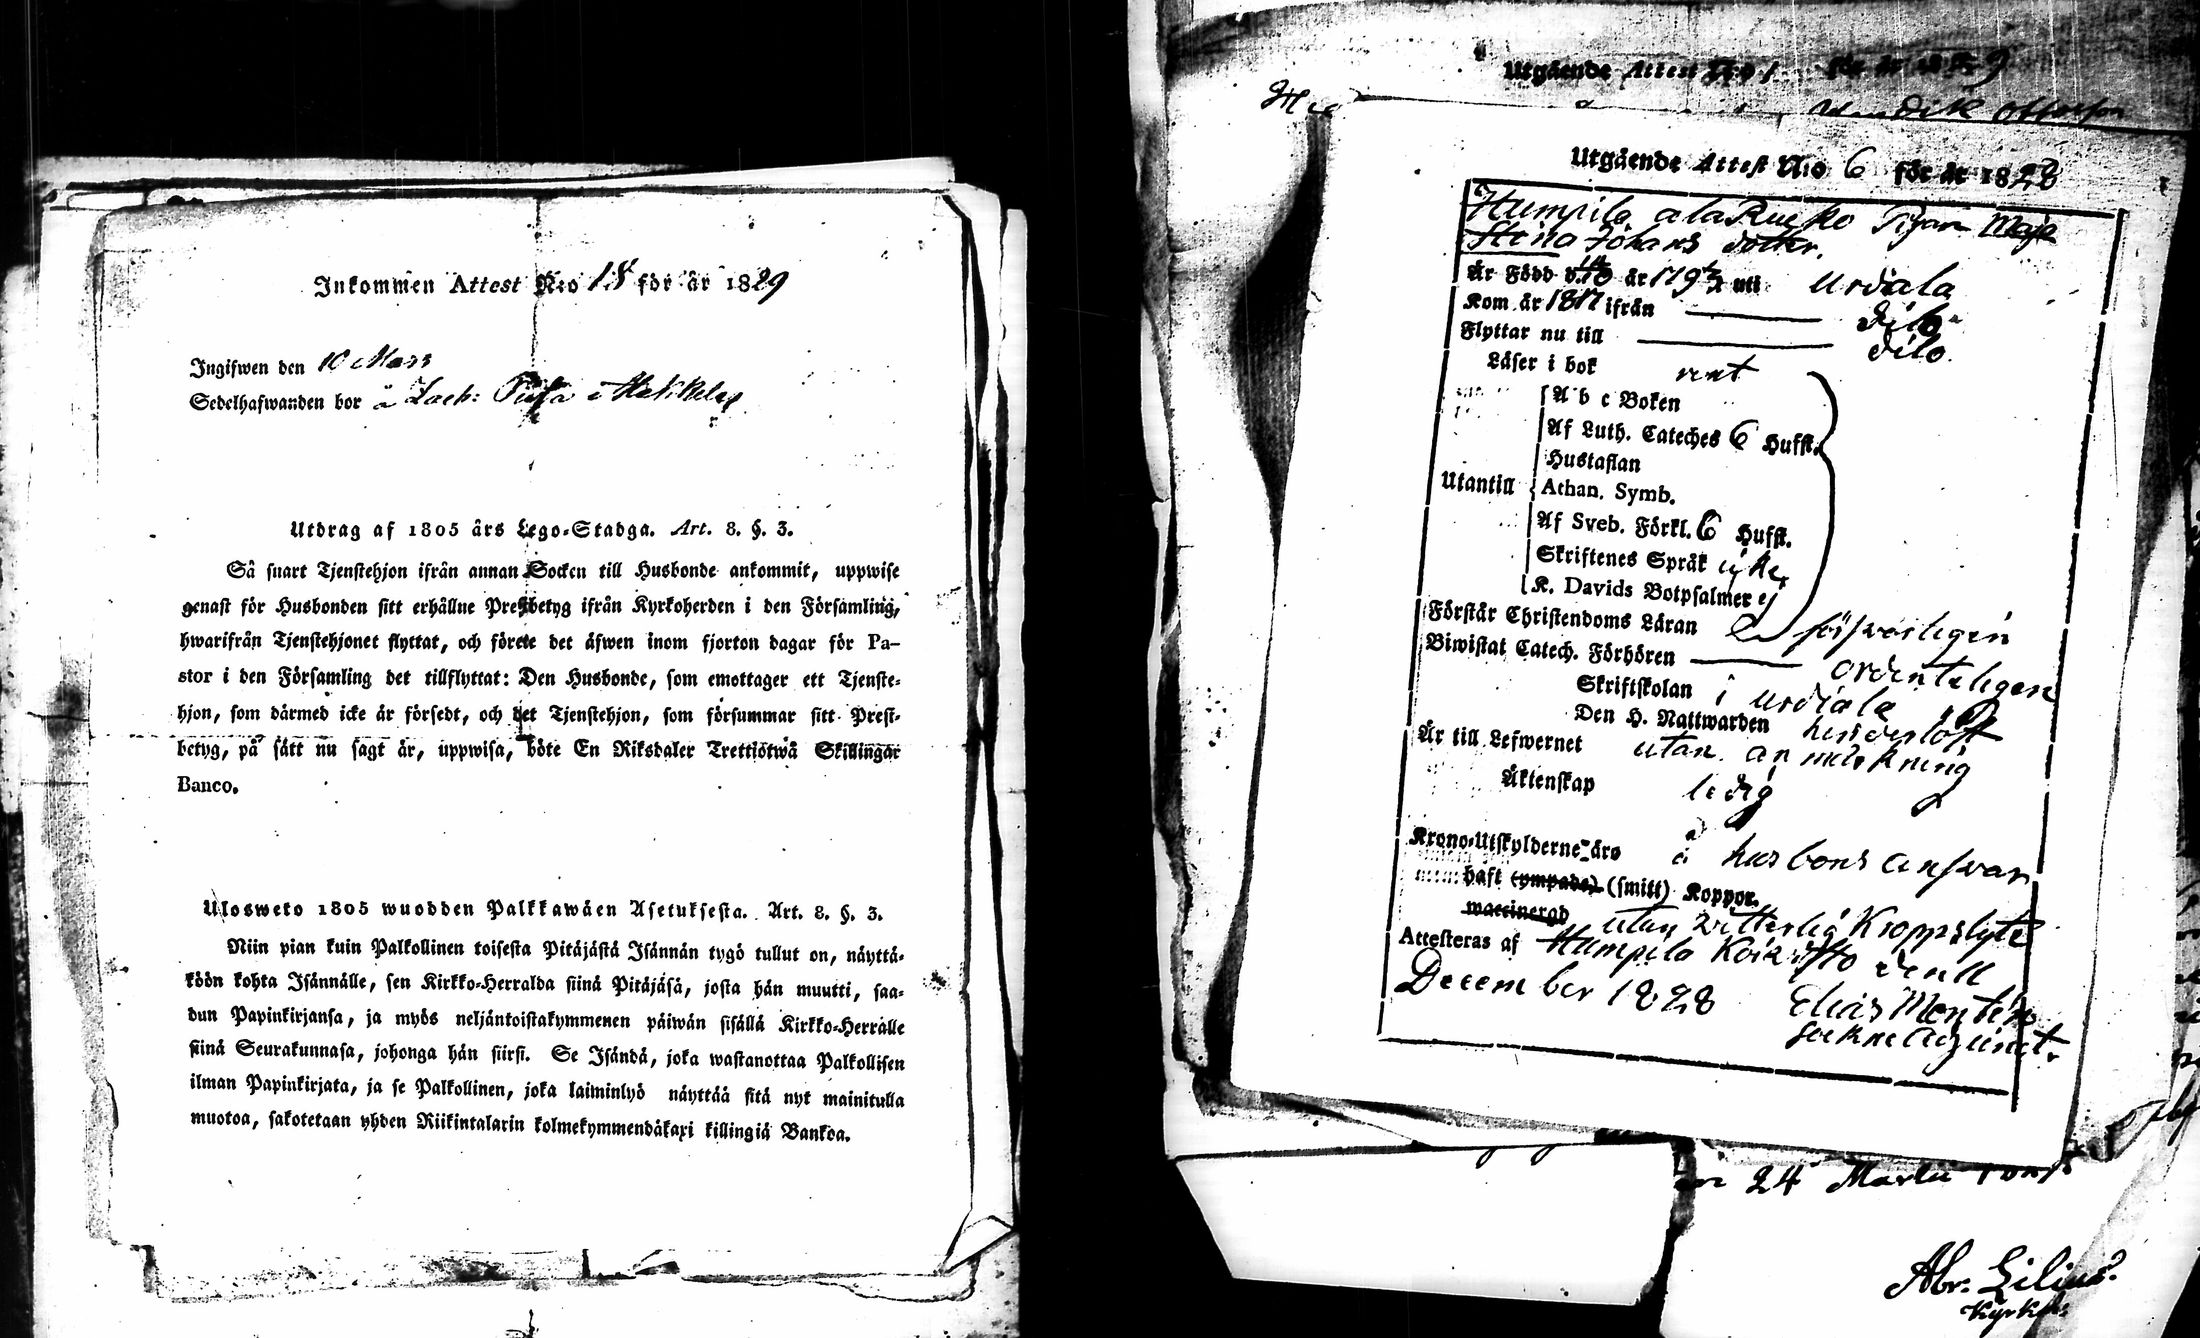 Inkommen Attest N:o 18 för år 1829
Ingifwen den 10 Mars
Sedelhafwanden bor å Zach:
Utdrag af 1805 års Lego-Stadga. Art. 8. §. 3.
Så snart Tjenstehjon ifrån annan Socken till Husbonde ankommit, uppwise
genast för Husbonden sitt erhållne Prestbetyg ifrån Kyrkoherden i den Församling,
hwarifrån Tjenstehjonet flyttat, och förete det äfwen inom fjorton dagar för Pa-
stor i den Församling det tillflyttat: Den Husbonde, som emottager ett Tjenste-
hjon, som därmed icke är försedt, och det Tjenstehjon, som försummar sitt Prest-
betyg, på sätt nu sagt är, uppwisa, böte En Riksdaler Trettiotwå Skillingar
Banco.
Ulosweto 1805 wuodden Palkkawäen Asetuksesta. Art. 8. §. 3.
Niin pian kuin Palkollinen toisesta Pitäjästä Isännän tygö tullut on, näyttä-
köön kohta Isännälle, sen Kirkko-Herralda siinä Pitäjäsä, josta hän muutti, saa-
dun Papinkirjansa, ja myös neljäntoistakymmenen päiwän sisällä Kirkko-Herralle
siinä Seurakunnasa, johonga hän siirsi. Se Isändä, joka wastanottaa Palkollisen
ilman Papinkirjata, ja se Palkollinen, joka laiminlyö näyttää sitä nyt mainitulla
muotoa, sakotetaan yhden Riikintalarin kolmekymmendäkaxi killingiä Bankoa.
Utgående Attest N:o 1 för år 1829
Hendrik Ottosson
Utgående Attest N:o 6 för år 1828
Humpila ala Rucko Pigan Maja
Stina Johans dotter.
Är Född d. år 1793 uti Urdiala
Kom år 1817 ifrån dito
Flyttar nu till dito.
Läser i bok rent
A b c Boken
Af Luth. Cateches 6 Hufst.
Hustaflan
Utantill Athan. Symb.
Af Sveb. Förkl. 6 Hufst.
Skriftenes Språk icke
K. Davids Botpsalmer ej
Förstår Christendoms Läran försvarligen
Biwistat Catech. Förhören ordenteligen
Skriftskolan i Urdiala
Den H. Nattwarden hinderlöst
Är till Lefwernet utan anmärkning
Äktenskap ledig
Krono-Utskylderne äro å husbons answar
haft (ympade) (smitt) Koppor.
waccinerad utan witterlig Kroppslyte
Attesteras af Humpila den 11
December 1828 Elias Montén
Sockne Adjunct.
24 Martii
Abr. Lilius
Kyrkoh: